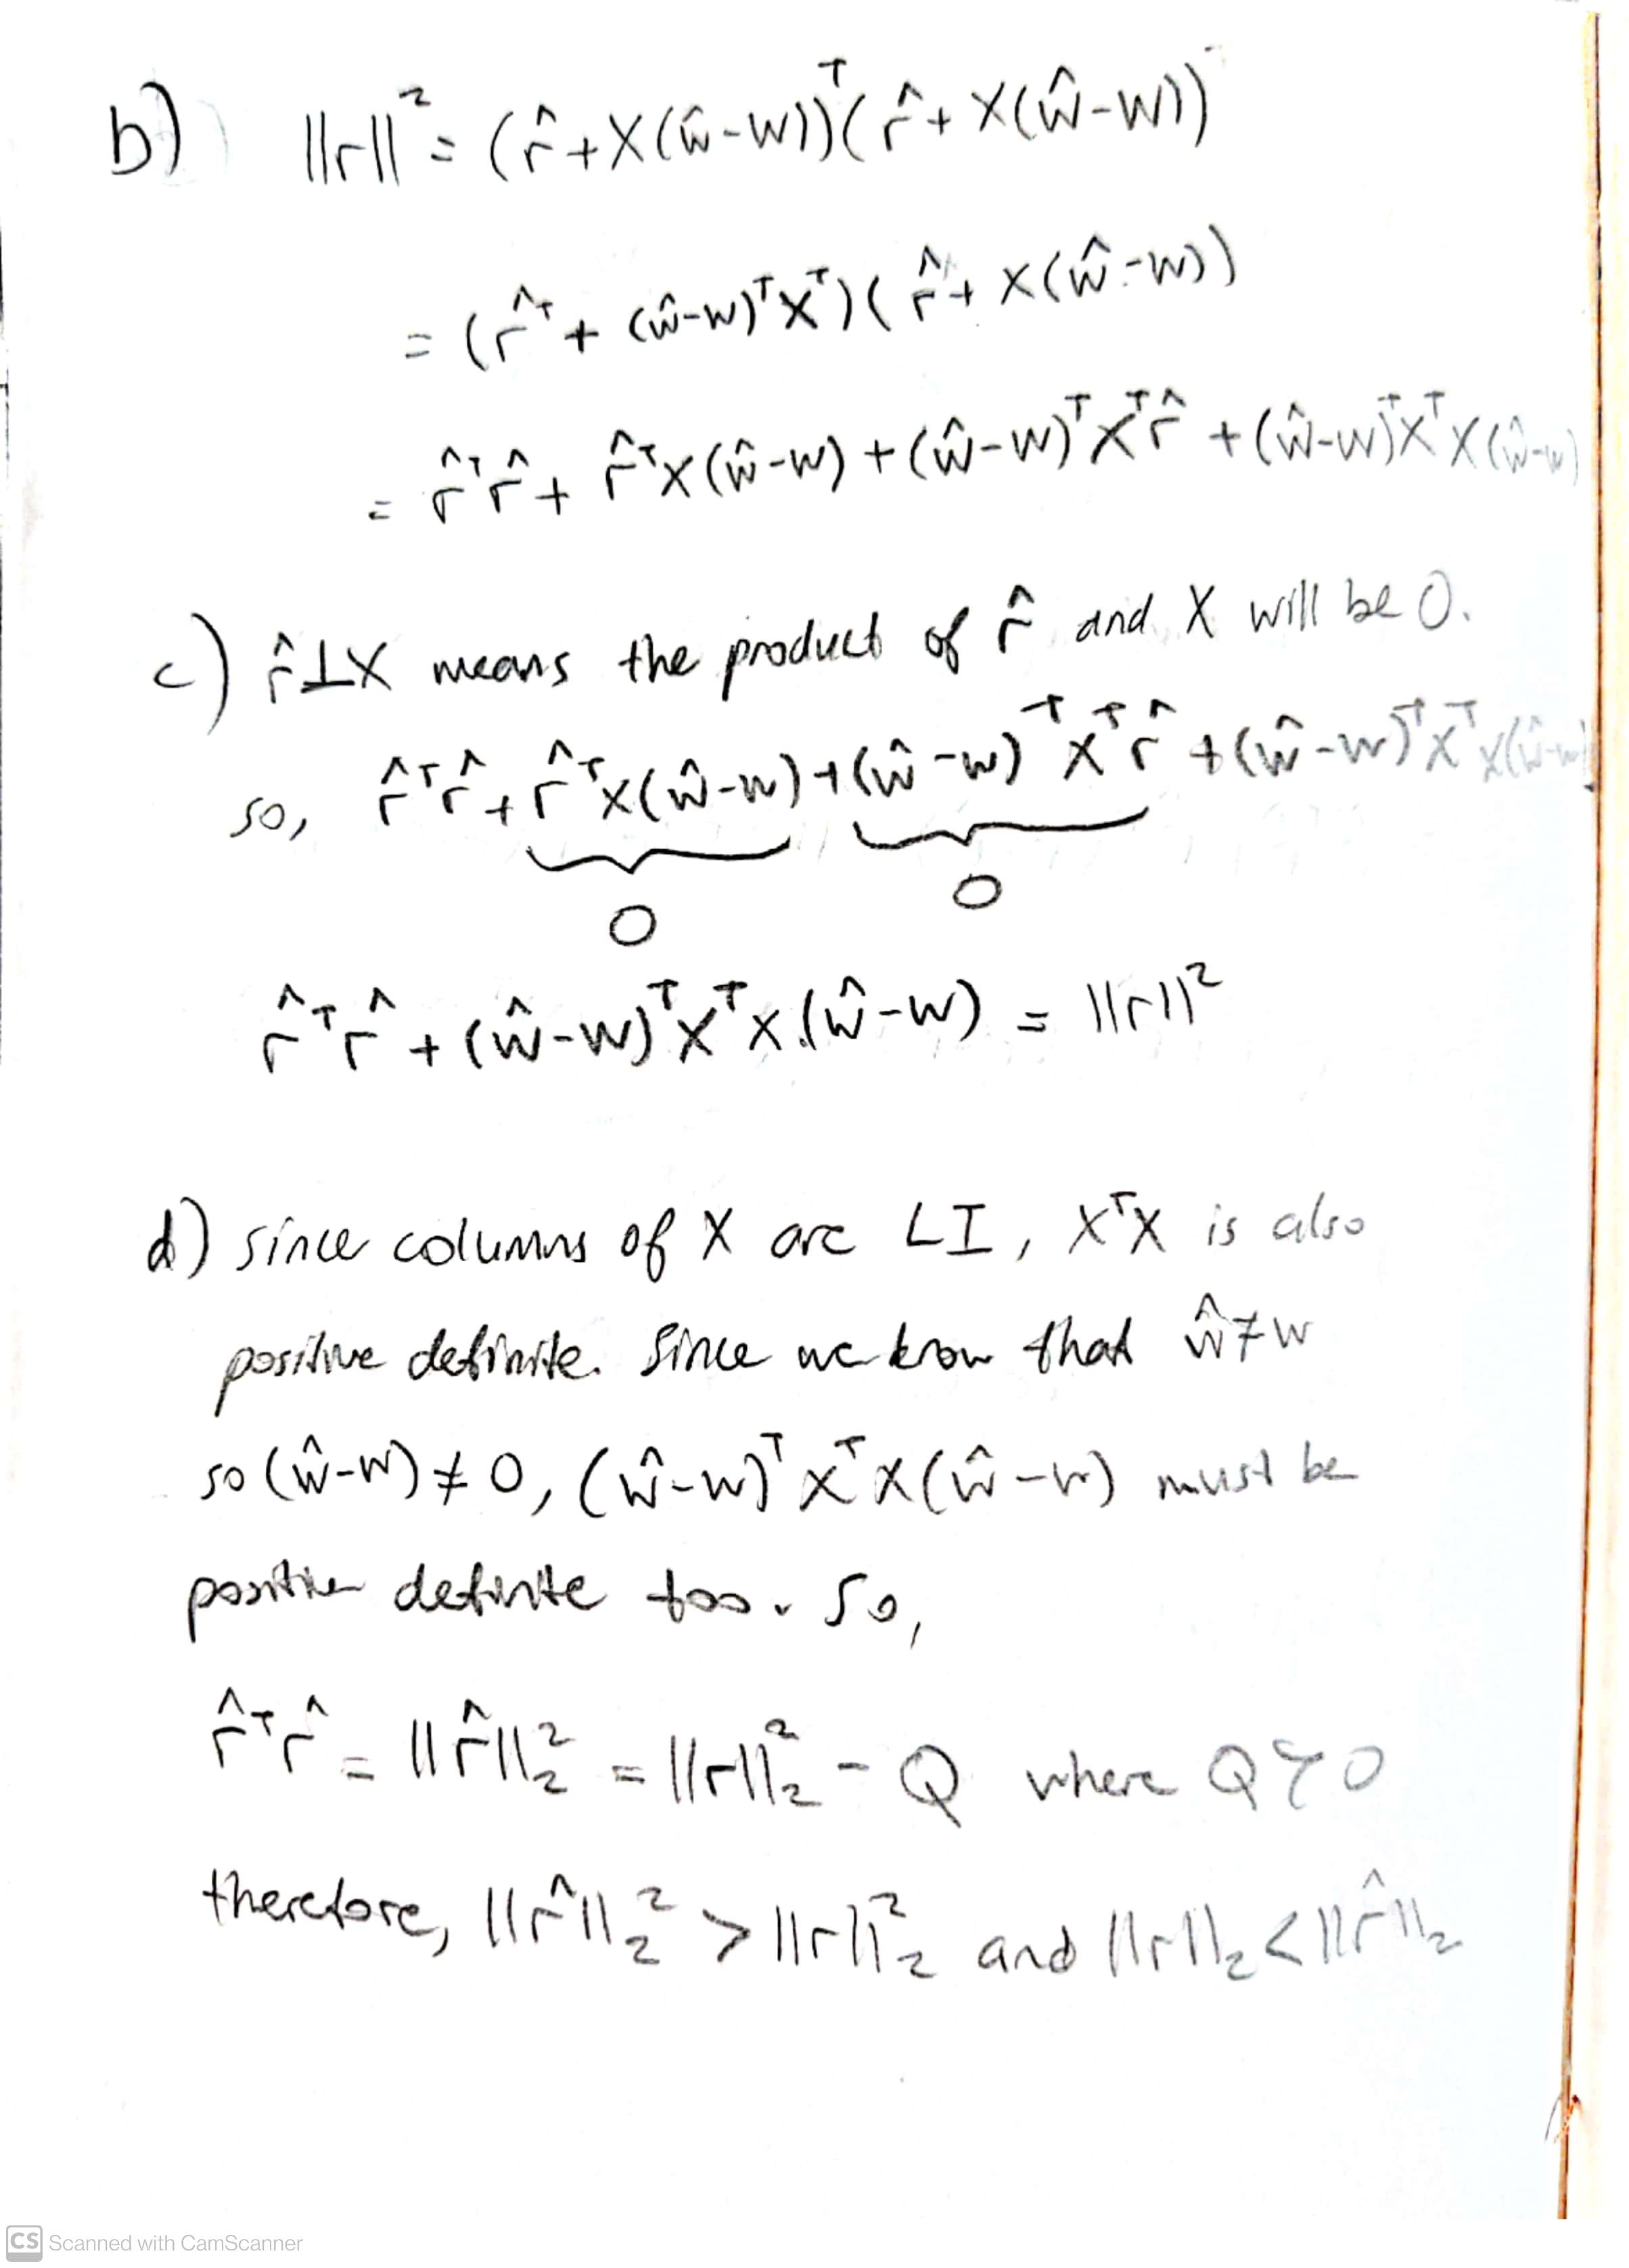 b) ||r||² = (r̂ + X(ŵ-w))ᵀ(r̂ + X(ŵ-w))
= (r̂ᵀ + (ŵ-w)ᵀXᵀ)(r̂ + X(ŵ-w))
= r̂ᵀr̂ + r̂ᵀX(ŵ-w) + (ŵ-w)ᵀXᵀr̂ + (ŵ-w)ᵀXᵀX(ŵ-w)
c) r̂⊥X means the product of r̂ and X will be 0.
so, r̂ᵀr̂ + r̂ᵀX(ŵ-w) + (ŵ-w)ᵀXᵀr̂ + (ŵ-w)ᵀXᵀX(ŵ-w)
0 0
r̂ᵀr̂ + (ŵ-w)ᵀXᵀX.(ŵ-w) = ||r||²
d) since columns of X are LI, XᵀX is also
positive definite. Since we know that ŵ≠w
so (ŵ-w) ≠ 0, (ŵ-w)ᵀXᵀX(ŵ-w) must be
positive definite too. So,
r̂ᵀr̂ = ||r̂||₂² = ||r||₂² - Q where Q≻0
therefore, ||r̂||₂² > ||r||₂² and ||r||₂ < ||r̂||₂
CS Scanned with CamScanner